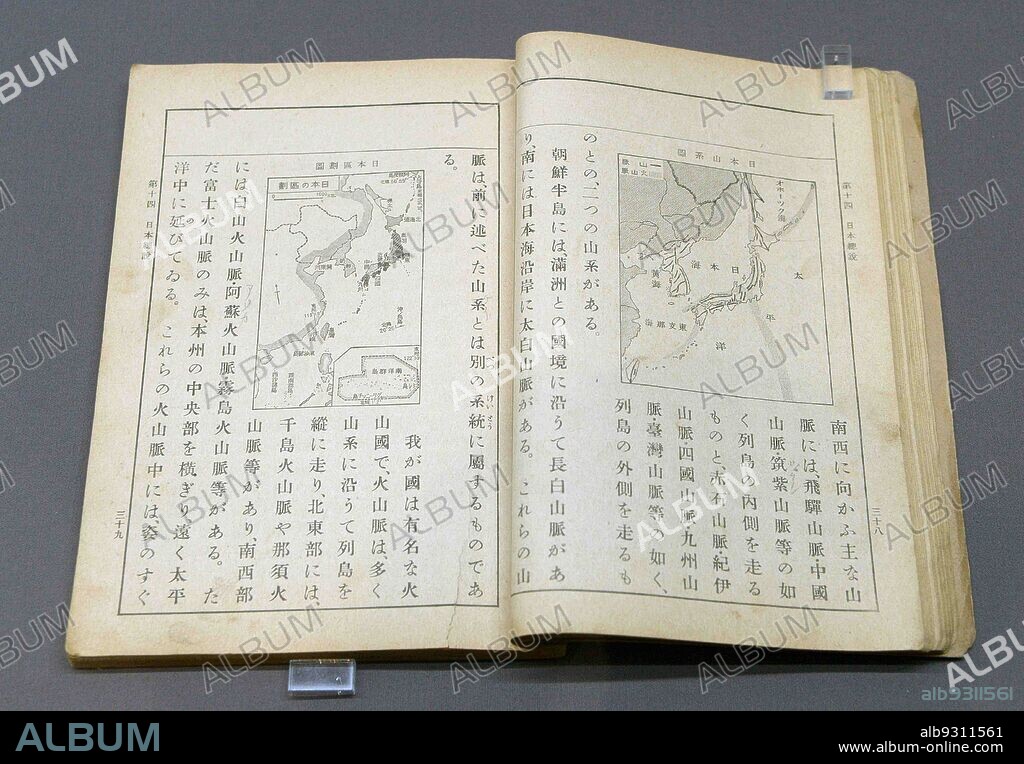 第十四 日本總說
三十八
南西に向かふ主な山
脈には、飛驒山脈中國
山脈・筑紫山脈等の如
く列島の內側を走る
ものと、赤石山脈・紀伊
山脈・四國山脈・九州山
脈・臺灣山脈等の如く、
列島の外側を走るも
日本山系圖
山脈
火山脈
オホーツク海
日本海
黃海
東支那海
太平洋
のとの、二つの山系がある。
朝鮮半島には、滿洲との國境に沿うて長白山脈があ
り、南には日本海沿岸に太白山脈がある。これらの山
脈は、前に述べた山系とは別の系統に屬するものであ
けいとう
る。
日本區劃圖
日本の區劃
南洋群島
我が國は有名な火
山國で、火山脈は、多く
山系に沿うて列島を
縱に走り、北東部には、
千島火山脈や那須火
山脈等があり、南西部
には、白山火山脈・阿蘇火山脈・霧島火山脈等がある。た
だ富士火山脈のみは、本州の中央部を橫ぎり、遠く太平
洋中に延びてゐる。これらの火山脈中には、姿のすぐ
第十四 日本總說
三十九
ALBUM
alb9311561
ALBUM
alb9311561
www.album-online.com